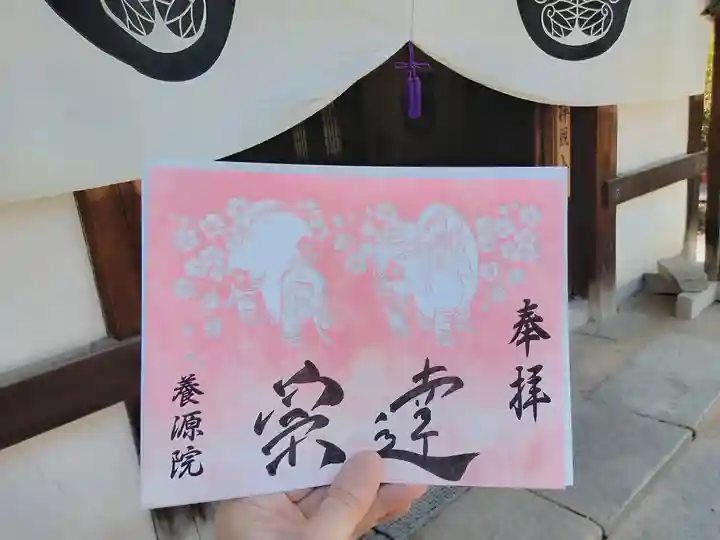 奉拝
宗達
養源院